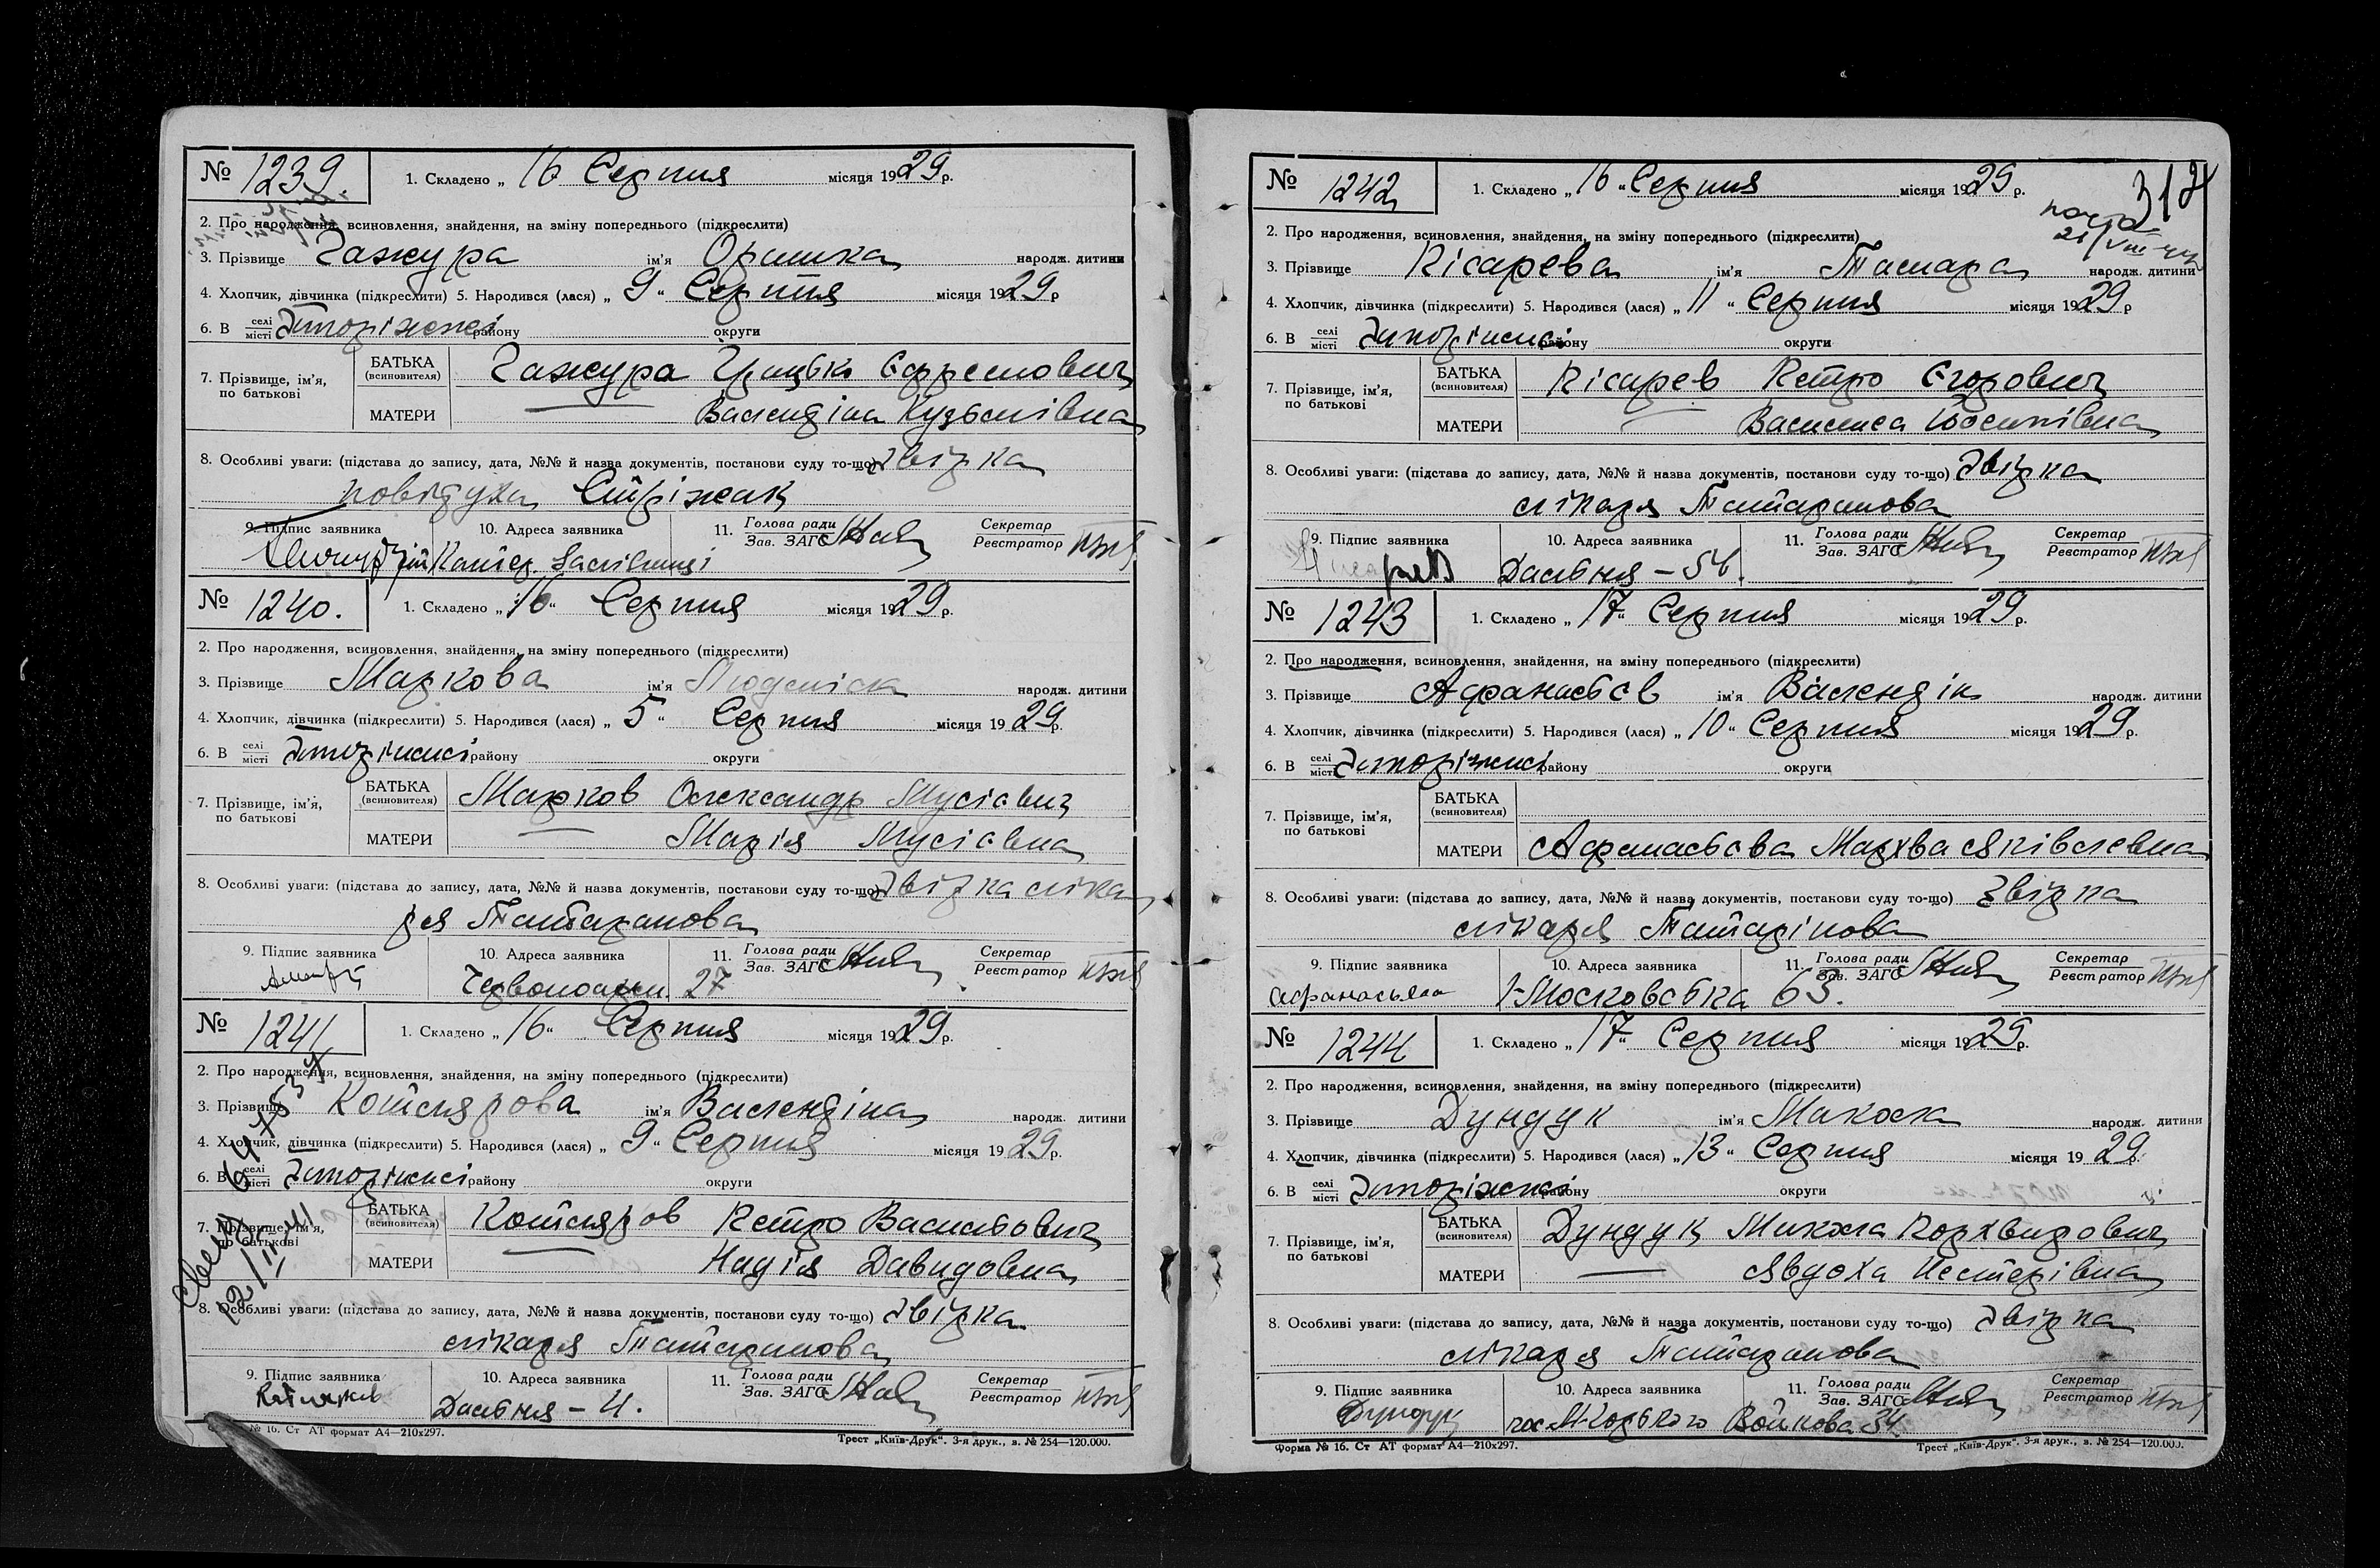 № 1239. 1. Складено „ 16 Серпня місяця 1929 р.
2. Про народження, всиновлення, знайдення, на зміну попереднього (підкреслити)
3. Прізвище Гажура ім'я Оришка народж. дитини
4. Хлопчик, дівчинка (підкреслити) 5. Народився (лася) „ 9 “ Серпня місяця 1929 р
6. В селі місті Запоріжжі району округи
7. Прізвище, ім'я, по батькові
БАТЬКА (всиновителя) Гажура Грицько Єфремович
МАТЕРИ — Валендіна Кузьмівна
8. Особливі уваги: (підстава до запису, дата, №№ й назва документів, постанови суду то-що) Звідка
повітуха Стріжак
9. Підпис заявника 10. Адреса заявника 11. Голова ради Зав. ЗАГС Секретар Реєстратор
№ 1240. 1. Складено „ 16 “ Серпня місяця 1929 р.
2. Про народження, всиновлення, знайдення, на зміну попереднього (підкреслити)
3. Прізвище Маркова ім'я Людміла народж. дитини
4. Хлопчик, дівчинка (підкреслити) 5. Народився (лася) „ 5 “ Серпня місяця 1929 р.
6. В селі місті Запоріжжі району округи
7. Прізвище, ім'я, по батькові
БАТЬКА (всиновителя) Марков Олександр Мусієвич
МАТЕРИ — Марія Мусієвна
8. Особливі уваги: (підстава до запису, дата, №№ й назва документів, постанови суду то-що) Звідка ліка
ря Татаринова
9. Підпис заявника 10. Адреса заявника 11. Голова ради Зав. ЗАГС Секретар Реєстратор
27
№ 1241 1. Складено „ 16 “ Серпня місяця 1929 р.
2. Про народження, всиновлення, знайдення, на зміну попереднього (підкреслити)
3. Прізвище Котлярова ім'я Валендіна народж. дитини
4. Хлопчик, дівчинка (підкреслити) 5. Народився (лася) „ 9 “ Серпня місяця 1929 р.
6. В селі місті Запоріжжі району округи
7. Прізвище, ім'я, по батькові
БАТЬКА (всиновителя) Котляров Петро Васильович
МАТЕРИ — Надія Давидовна
8. Особливі уваги: (підстава до запису, дата, №№ й назва документів, постанови суду то-що) Звідка
лікаря Татаринова
9. Підпис заявника 10. Адреса заявника 11. Голова ради Зав. ЗАГС Секретар Реєстратор
Дальня – 4.
№ 16. Ст АТ формат А4—210х297. Трест „Київ-Друк“. 3-я друк., з. № 254—120.000.
312
№ 1242 1. Складено „ 16 “ Серпня місяця 1929 р.
2. Про народження, всиновлення, знайдення, на зміну попереднього (підкреслити)
3. Прізвище Кісарева ім'я Тамара народж. дитини
4. Хлопчик, дівчинка (підкреслити) 5. Народився (лася) „ 11 “ Серпня місяця 1929 р
6. В селі місті Запоріжжі району округи
7. Прізвище, ім'я, по батькові
БАТЬКА (всиновителя) Кісарев Петро Єгорович
МАТЕРИ — Василиса Йосипівна
8. Особливі уваги: (підстава до запису, дата, №№ й назва документів, постанови суду то-що) Звідка
лікаря Татаринова
9. Підпис заявника 10. Адреса заявника 11. Голова ради Зав. ЗАГС Секретар Реєстратор
Дальня – 54.
№ 1243 1. Складено „ 17 “ Серпня місяця 1929 р.
2. Про народження, всиновлення, знайдення, на зміну попереднього (підкреслити)
3. Прізвище Афанасьєв ім'я Валендін народж. дитини
4. Хлопчик, дівчинка (підкреслити) 5. Народився (лася) „ 10 “ Серпня місяця 1929 р.
6. В селі місті Запоріжжі району округи
7. Прізвище, ім'я, по батькові
БАТЬКА (всиновителя)
МАТЕРИ Афанасьєва Мархва Яківлевна
8. Особливі уваги: (підстава до запису, дата, №№ й назва документів, постанови суду то-що) Звідка
лікаря Татарінова
9. Підпис заявника 10. Адреса заявника 11. Голова ради Зав. ЗАГС Секретар Реєстратор
Афанасьева Московська 63.
№ 1244 1. Складено „ 17 “ Серпня місяця 1929 р.
2. Про народження, всиновлення, знайдення, на зміну попереднього (підкреслити)
3. Прізвище Дундук ім'я Микола народж. дитини
4. Хлопчик, дівчинка (підкреслити) 5. Народився (лася) „ 13 “ Серпня місяця 1929 р.
6. В селі місті Запоріжжі району округи
7. Прізвище, ім'я, по батькові
БАТЬКА (всиновителя) Дундук Микола Порхвирович
МАТЕРИ — Явдоха Нестерівна
8. Особливі уваги: (підстава до запису, дата, №№ й назва документів, постанови суду то-що) Звідка
лікаря Татаринова
9. Підпис заявника 10. Адреса заявника 11. Голова ради Зав. ЗАГС Секретар Реєстратор
Дундук Войкова 34
Форма № 16. Ст АТ формат А4—210х297. Трест „Київ-Друк“. 3-я друк., з. № 254—120.000.